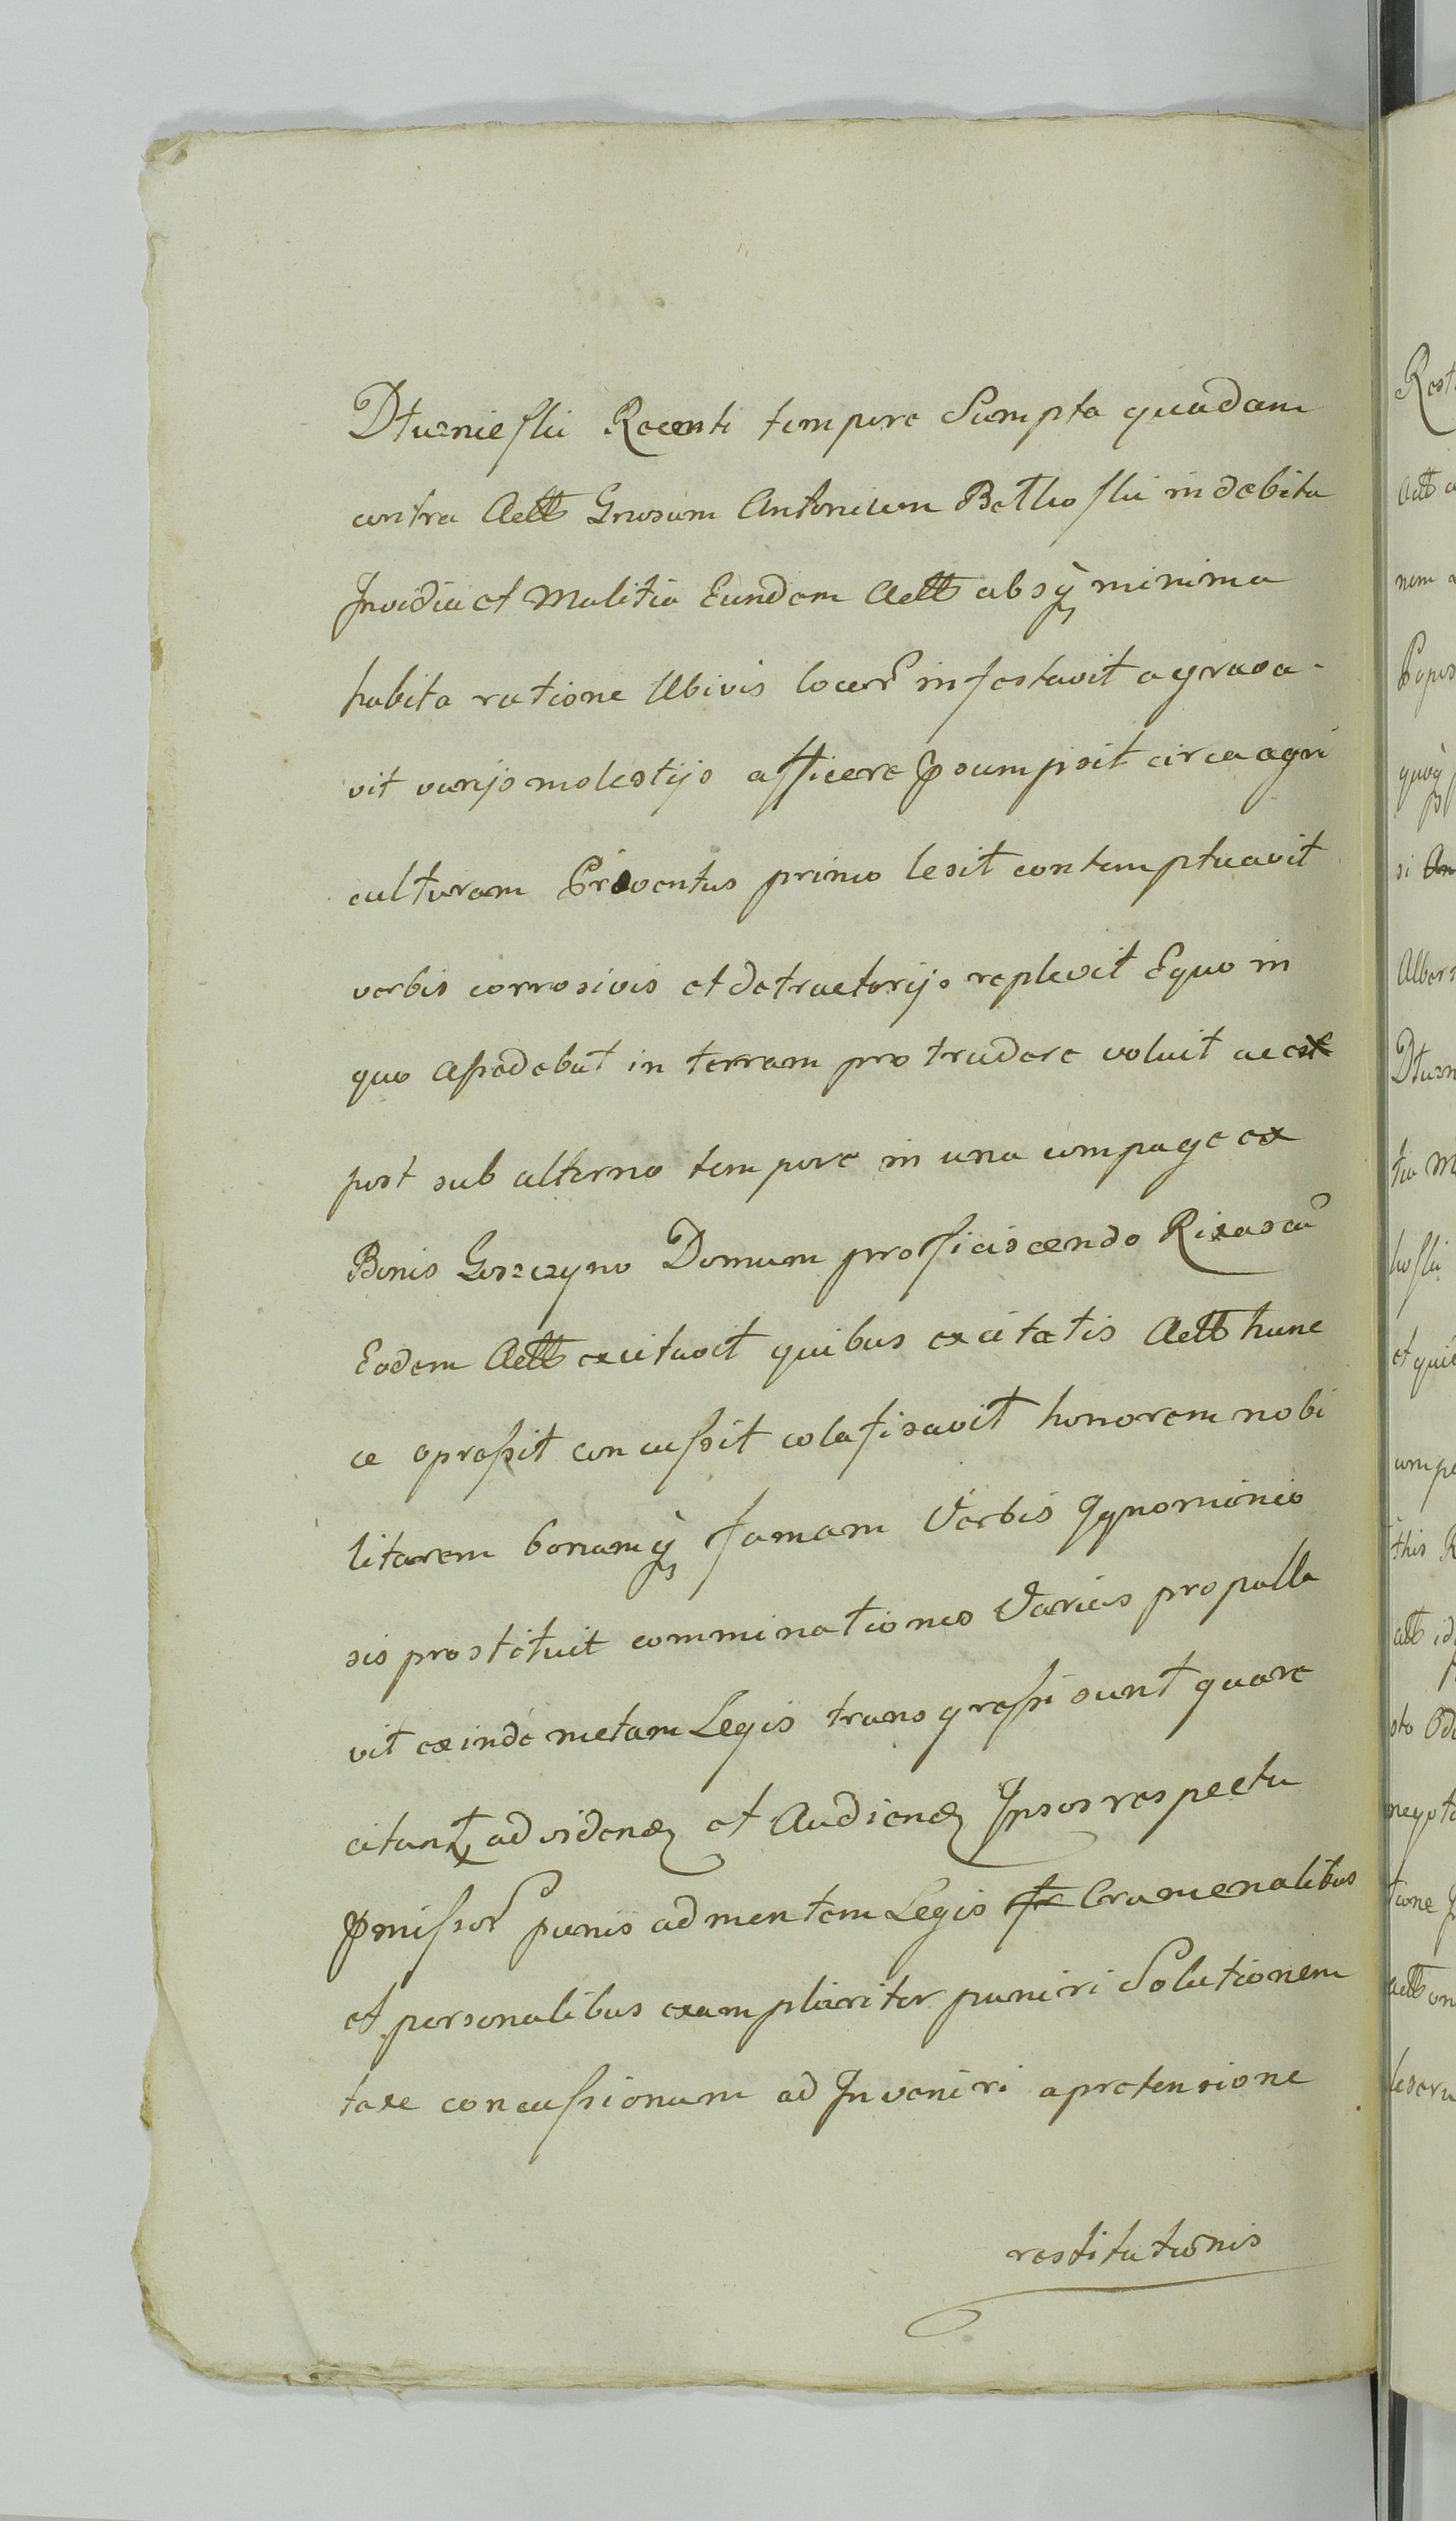 Dtuznieski Recenti tempore Sumpta quadam
contra Actt Gnrosum Antonium Betkoski indebita
Invidia et Malitia Eundem Actt absq minima
habita ratione Ubivis locor infestavit agrava-
vit varijs molestijs afficere psumpsit circa agri
culturam Proventus primo lesit contemptuavit
verbis corrosivis et detractorijs replevit Equo in
quo assedebat in terram protrudere voluit ac ex
post sub alterno tempore in una compage ex
Bonis Goszczyno Domum proficiscendo Rixas cu
Eodem Actt excitavit quibus excitatis Actt hunc
ce opressit concussit colafisavit honorem nobi
litarem bonamq famam Verbis Ignominio
sis prostituit comminationes Varias propalla
vit exinde metam Legis transgressi sunt quare
citant ad videnđ et Audienđ Ipsos respectu
pmissor punis ad mentem Legis Cramenalibus
et personalibus exemplariter puniri Solutionem
taxe concussionum ad Inveniri apretensione
restitutionis
Rest
Actt
nem
quoq
si
Albers
Dtuzn
tia M
koski
et qui
compa
this R
actt id
sto
negot
tione
actt
leseru